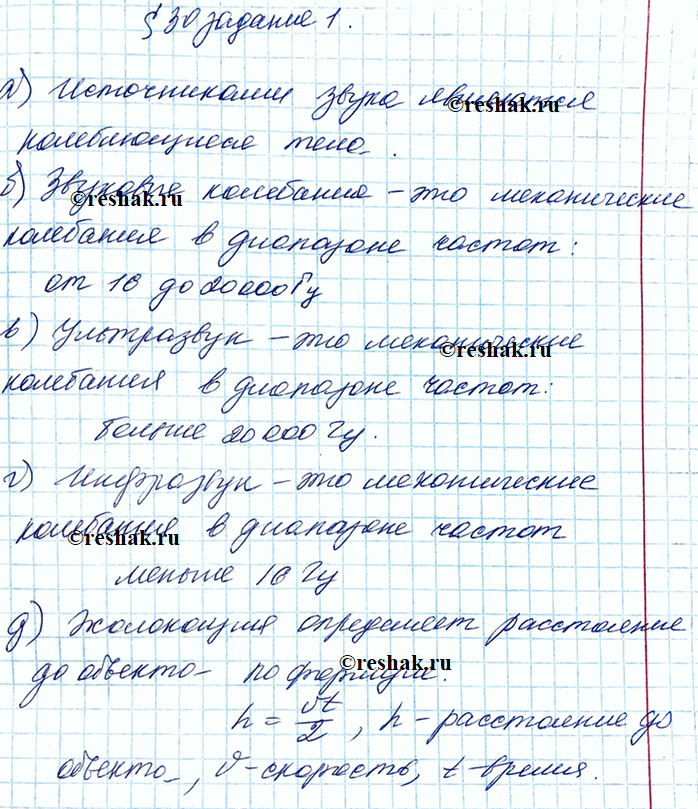 § 30 задание 1.
а) Источниками звука являются
колеблющиеся тела.
б) Звуковые колебания – это механические
колебания в диапазоне частот:
от 16 до 20000 Гц
в) Ультразвук – это механические
колебания в диапазоне частот:
больше 20000 Гц.
г) Инфразвук – это механические
колебания в диапазоне частот
меньше 16 Гц
д) Эхолокация определяет расстояние
до объекта по формуле.
h = vt/2, h – расстояние до
объекта, v – скорость, t – время.
©reshak.ru
©reshak.ru
©reshak.ru
©reshak.ru
©reshak.ru